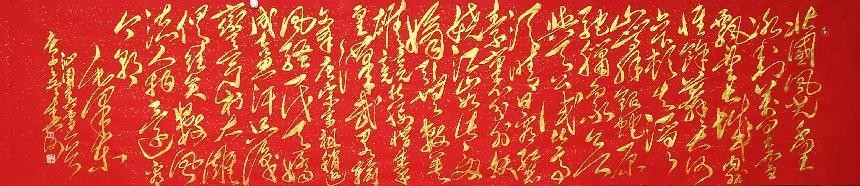 北國風光千里
冰封萬里雪
飄望長城內外
惟餘莽莽大河
上下頓失滔滔
山舞銀蛇原
馳蠟象欲
與天公試比高
須晴日看紅裝
素裹分外妖
嬈江山如此多
嬌引無數英
雄競折腰惜秦
皇漢武略輸
文采唐宗宋祖稍遜
風騷一代天驕
成吉思汗只識
彎弓射大雕
俱往矣數風
流人物還看
今朝
毛澤東
沁園春雪